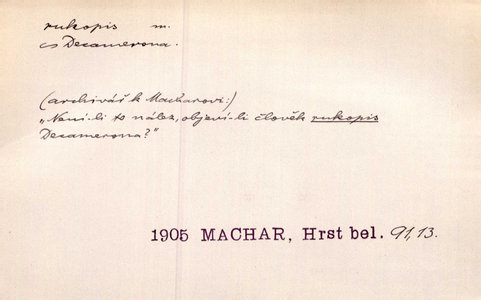 rukopis m.
Decamerona.
(archivář k Macharovi:)
„Není-li to nález, objeví-li člověk rukopis
Decamerona?"
1905 MACHAR, Hrst bel. 91,13.